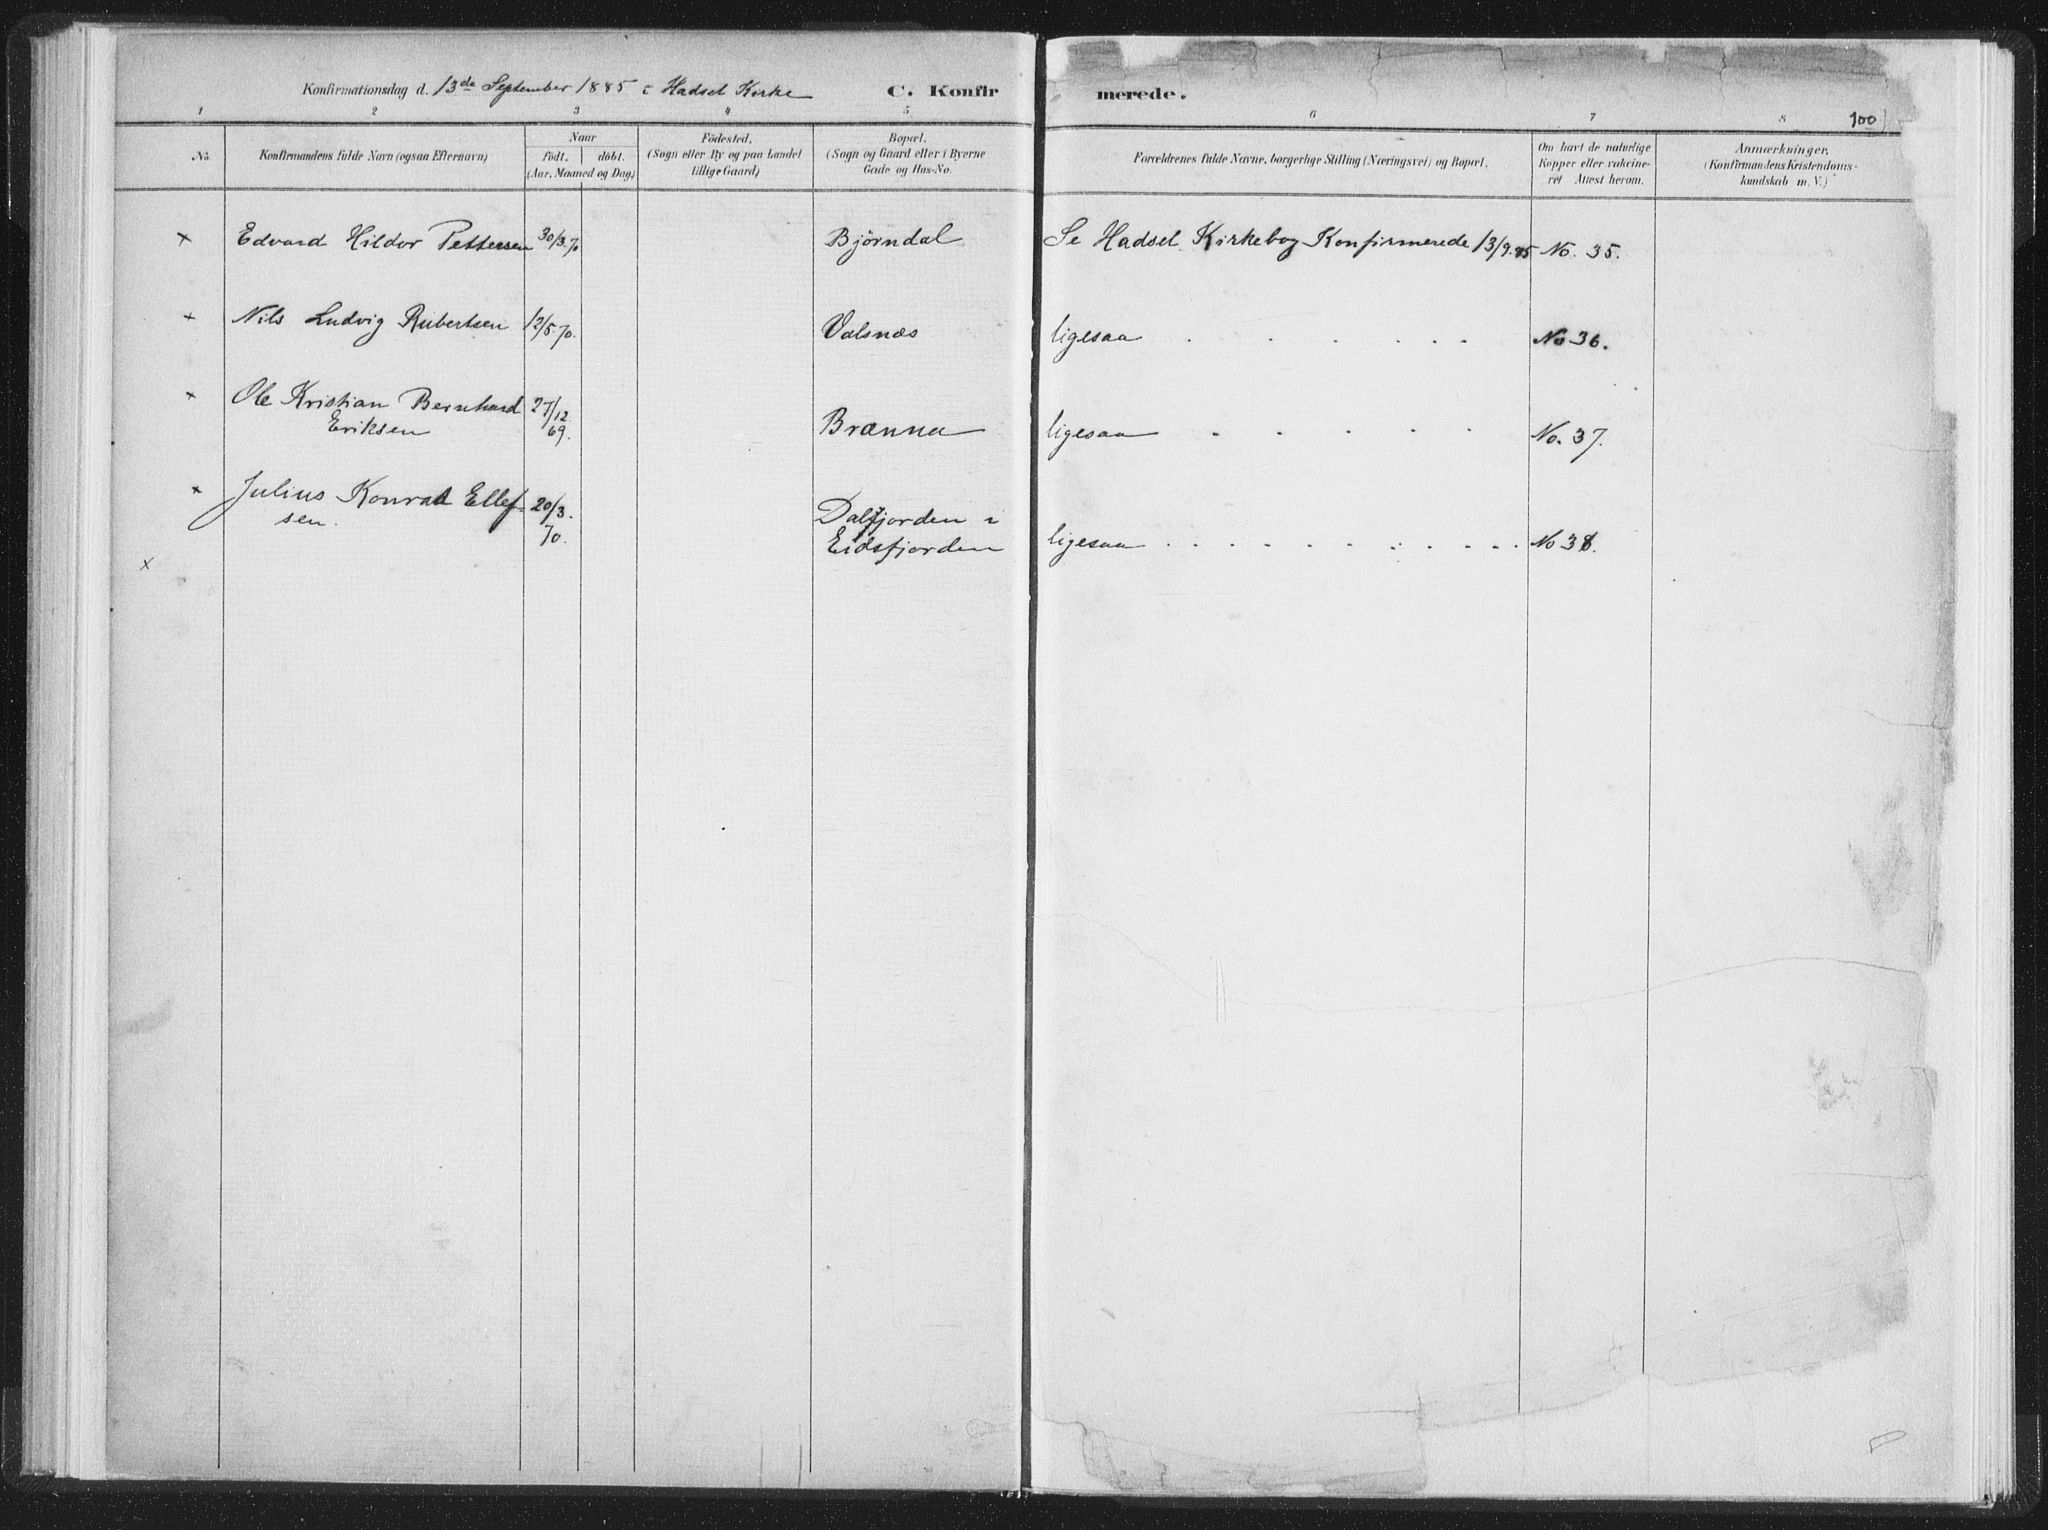 Konfirmationsdag d. 13de September 1885 i Hadsel Kirke C. Konfir merede.
1 2 3 4 5 6 7 8 100
No. Konfirmandens fulde Navn (ogsaa Efternavn)
Naar
födt. döbt.
(Aar, Maaned og Dag)
Födested.
(Sogn eller By og paa Landet
tillige Gaard)
Bopæl.
(Sogn og Gaard eller i Byerne
Gade og Hus-No.
Forældrenes fulde Navne, borgerlige Stilling (Næringsvei) og Bopæl.
Om havt de naturlige
Kopper eller vakcine-
ret Attest herom.
Anmærkninger.
(Konfirmandens Kristendoms-
kundskab m. V.)
x Edvard Hildor Pettersen 30/3.70 Björndal Se Hadsel Kirkebog Konfirmerede 13/9.85 No. 35.
x Nils Ludvig Rubertsen 12/5.70. Valsnæs ligesaa . . . . . . No 36.
x Ole Kristian Bernhard 27/12
Eriksen 69. Brænna ligesaa . . . . . No. 37.
x Julius Konrad Ellef- 20/3. Dalfjorden i
sen. 70. Eidsfjorden ligesaa . . . . . . . . . . No 38.
x